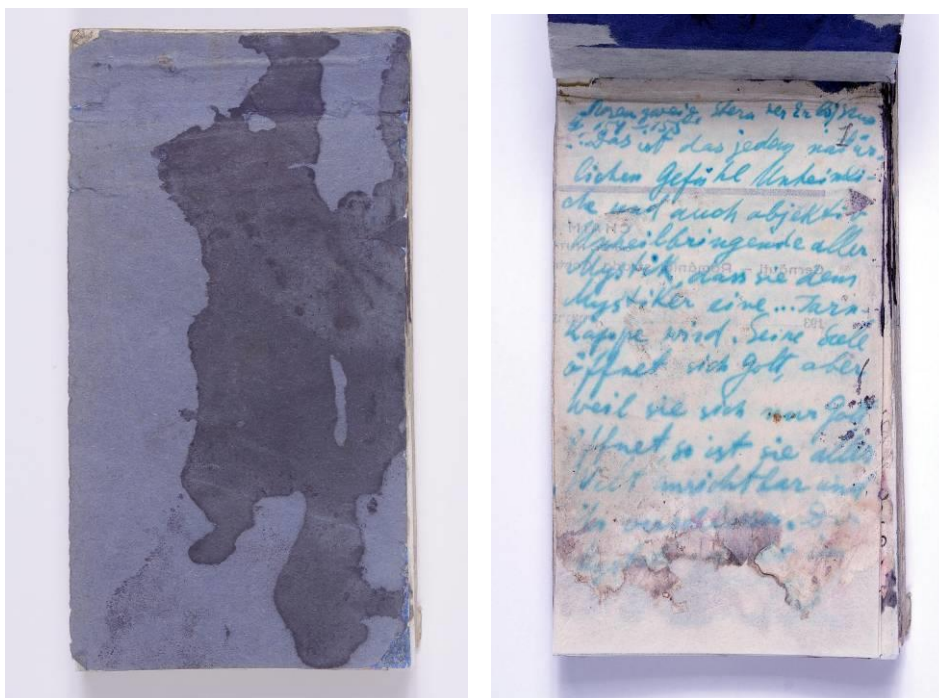 Rosenzweig, Stern der Erlösung
S. 154 - 155
"Das ist das jedem natür-
lichen Gefühl Unheimli-
che und auch objektiv
Unheilbringende aller
Mystik, dass sie dem
Mystiker eine... Tarn-
kappe wird. Seine Seele
öffnet sich Gott, aber
weil sie sich nur Gott
öffnet so ist sie aller
Welt unsichtbar und
ihr
CHAIM
Cernăuți – România
193